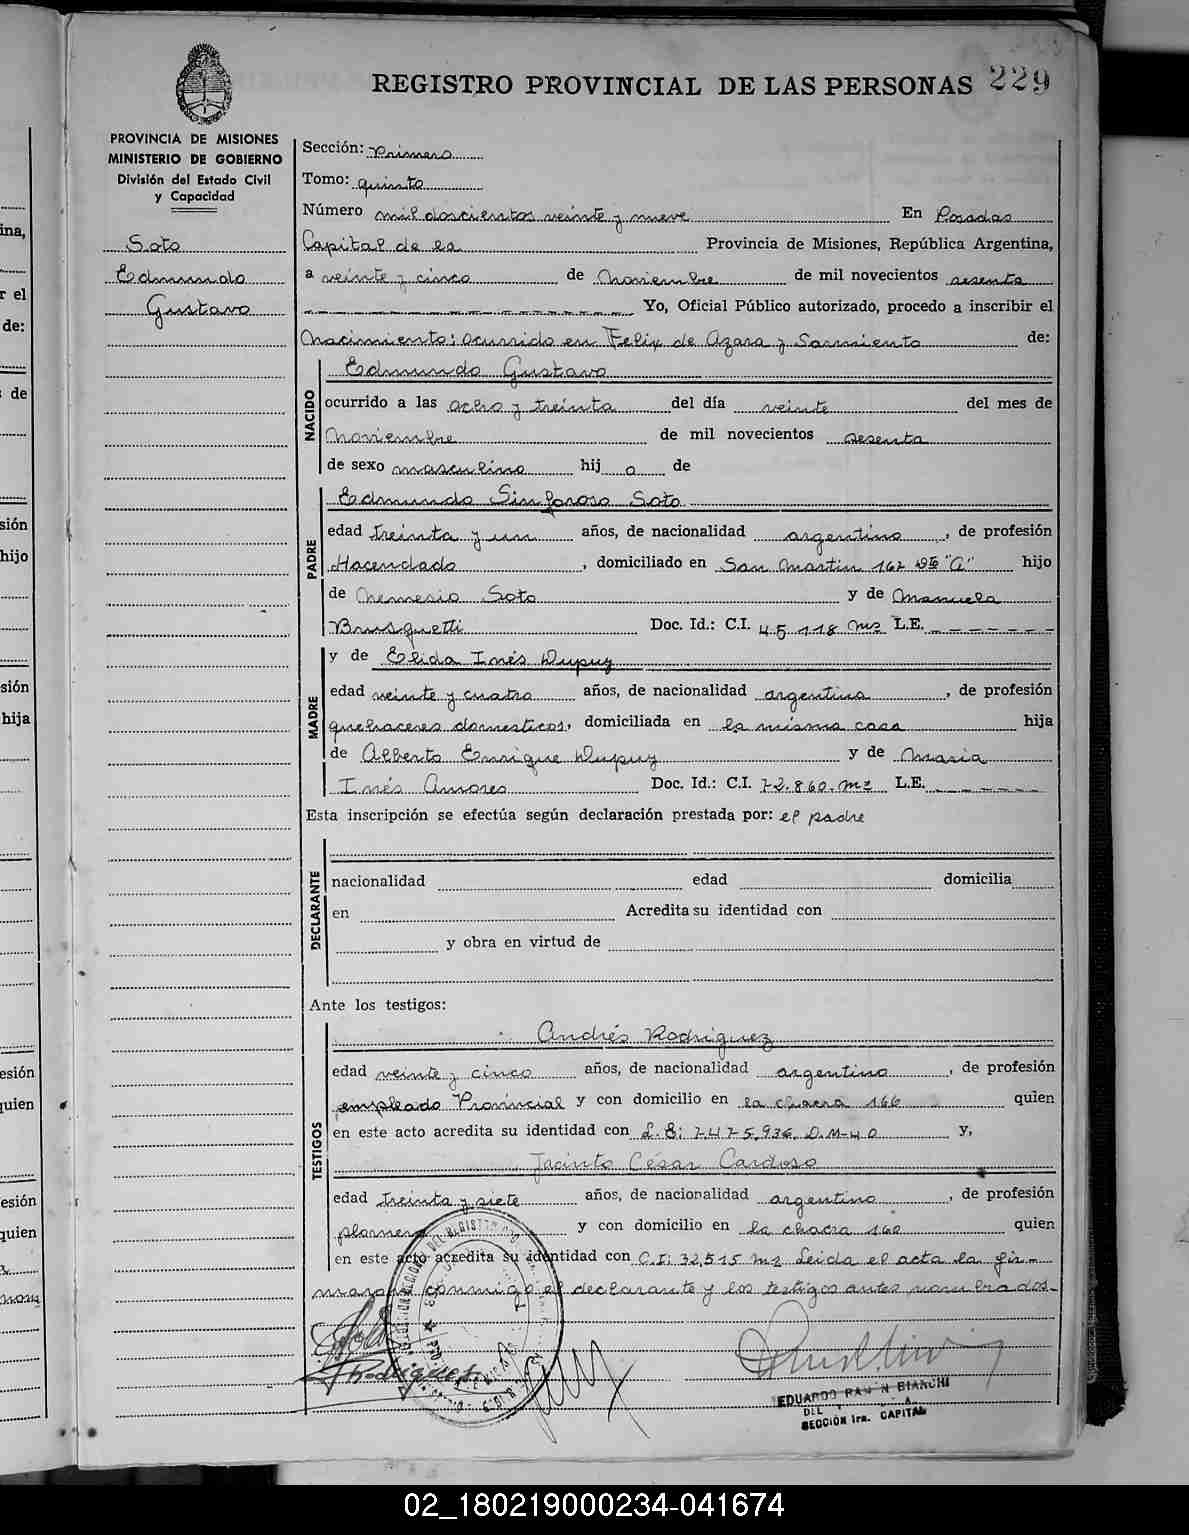 REGISTRO PROVINCIAL DE LAS PERSONAS 229
PROVINCIA DE MISIONES
MINISTERIO DE GOBIERNO
División del Estado Civil
y Capacidad
Soto
Edmundo
Gustavo
Sección: Primera
Tomo: quinto
Número mil doscientos veinte y nueve En Posadas
Capital de la Provincia de Misiones, República Argentina,
a veinte y cinco de Noviembre de mil novecientos sesenta
Yo, Oficial Público autorizado, procedo a inscribir el
Nacimiento: ocurrido en Felix de Azara y Sarmiento de:
NACIDO
Edmundo Gustavo
ocurrido a las ocho y treinta del día veinte del mes de
Noviembre de mil novecientos sesenta
de sexo masculino hij o de
PADRE
Edmundo Sinforoso Soto
edad treinta y un años, de nacionalidad argentino, de profesión
Hacendado, domiciliado en San Martin 162 "A" hijo
de Nemesio Soto y de Manuela
Brusquetti Doc. Id.: C.I. 45.118 Mz L.E.
MADRE
y de Elida Inés Dupuy
edad veinte y cuatro años, de nacionalidad argentina, de profesión
quehaceres domesticos, domiciliada en la misma casa hija
de Alberto Enrique Dupuy y de Maria
Inés Amores Doc. Id.: C.I. 72.860. Mz L.E.
Esta inscripción se efectúa según declaración prestada por: el padre
DECLARANTE
nacionalidad edad domicilia
en Acredita su identidad con
y obra en virtud de
Ante los testigos:
TESTIGOS
Andrés Rodriguez
edad veinte y cinco años, de nacionalidad argentino, de profesión
empleado Provincial y con domicilio en la chacra 166 quien
en este acto acredita su identidad con L.E: 7.475.936. D.M-40 y,
Jacinto César Cardoso
edad treinta y siete años, de nacionalidad argentino, de profesión
plomero y con domicilio en la chacra 160 quien
en este acto acredita su identidad con C.I: 32.515 Mz Leida el acta la fir-
maron conmigo el declarante y los testigos antes nombrados.-
Rodriguez
EDUARDO RAMON BIANCHI
SECCIÓN 1ra. CAPITAL
02_180219000234-041674